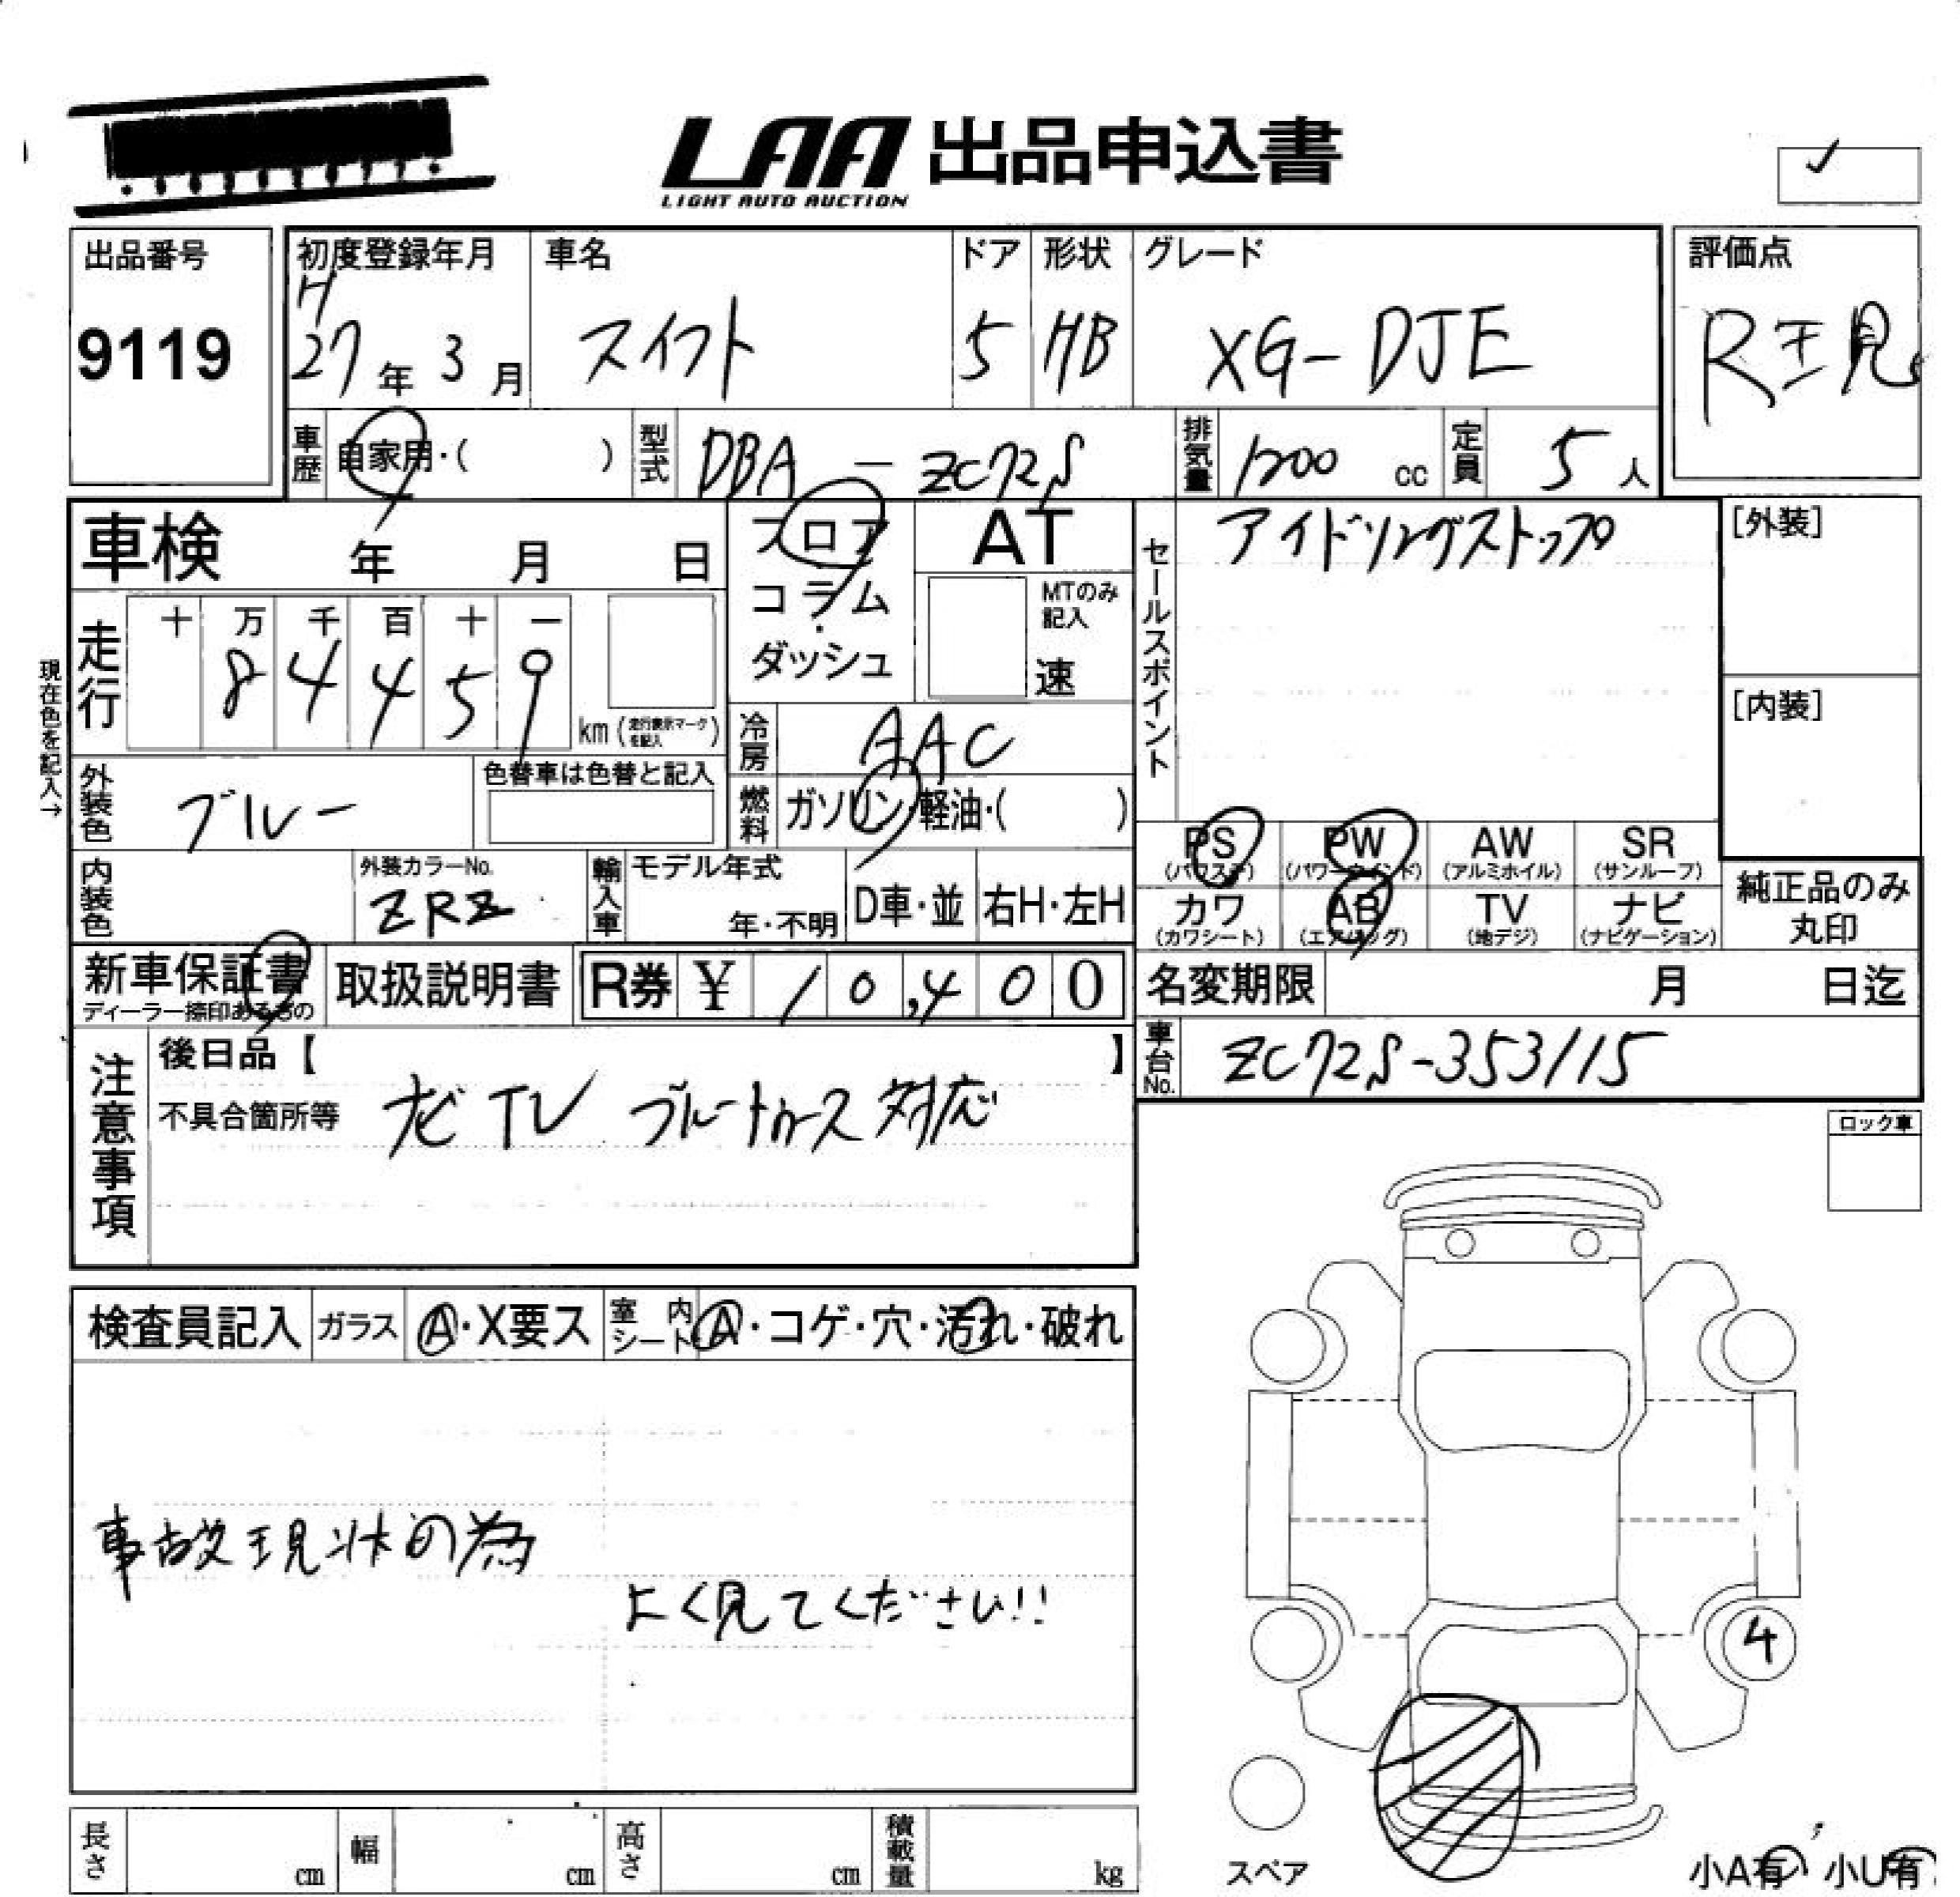 LAA 出品申込書
LIGHT AUTO AUCTION
出品番号
9119
初度登録年月
H
27年 3月
車名
スイフト
ドア
5
形状
HB
グレード
XG-DJE
評価点
R現
車歴 自家用・( )
型式 DBA - ZC72S
排気量 1200 cc
定員 5 人
車検 年 月 日
フロア
コラム
ダッシュ
AT
MTのみ
記入
速
セールスポイント
アイドリングストップ
[外装]
[内装]
現在色を記入→
走行
十 万 千 百 十 一
8 4 4 5 9
km (走行表示マークを記入)
冷房 AAC
外装色 ブルー
色替車は色替と記入
燃料 ガソリン・軽油・( )
内装色
外装カラーNo.
ZRZ
輸入車
モデル年式
年・不明
D車・並
右H・左H
PS
(パワステ)
PW
(パワーウインド)
AW
(アルミホイル)
SR
(サンルーフ)
カワ
(カワシート)
AB
(エアバッグ)
TV
(地デジ)
ナビ
(ナビゲーション)
純正品のみ
丸印
新車保証書
ディーラー捺印あるもの
取扱説明書
R券 ¥ 10,400
名変期限 月 日迄
車台No. ZC72S-353115
注意事項
後日品【 】
不具合箇所等
ナビ TV ブルートゥース 対応
ロック車
検査員記入
ガラス
A・X要ス
室内シート
A・コゲ・穴・汚れ・破れ
事故現状の為
よく見てください!!
4
スペア
小A有 小U有
長さ cm
幅 cm
高さ cm
積載量 kg